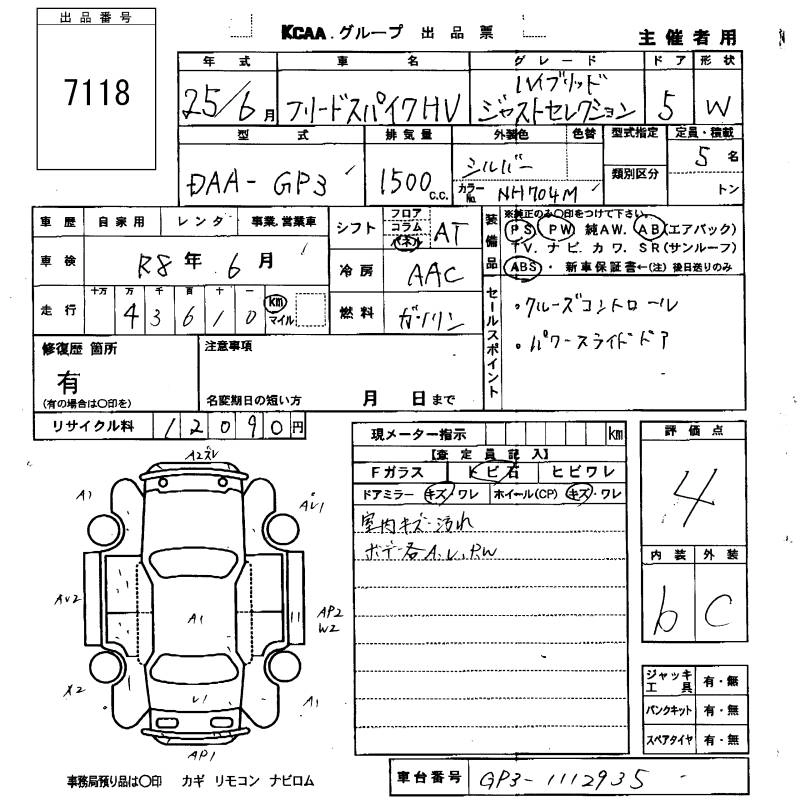 出品番号
7118
KCAA.グループ 出品票
主催者用
年式 車名 グレード ドア 形状
25/6月 フリードスパイクHV ハイブリッド ジャストセレクション 5 W
型式 排気量 外装色 色替 型式指定 定員・積載
DAA-GP3 1500 c.c. シルバー 5名
カラーNo. NH704M 類別区分 トン
車歴 自家用 レンタ 事業.営業車
シフト フロア コラム パネル AT
車検 R8年6月
冷房 AAC
走行 十万 万 千 百 十 一
43610 km マイル
燃料 ガソリン
装備品 ※純正のみ○印をつけて下さい。
PS PW 純AW. AB(エアバック)
TV. ナビ. カワ. SR(サンルーフ)
ABS ・ 新車保証書←(注)後日送りのみ
セールスポイント
・クルーズコントロール
・パワースライドドア
修復歴 箇所
有
(有の場合は○印を)
注意事項
名変期日の短い方 月 日まで
リサイクル料 12090円
現メーター指示 km
【査定員記入】
Fガラス トビ石 ヒビワレ
ドアミラー キズ・ワレ ホイール(CP) キズ・ワレ
室内キズ汚れ
ボデー各A.U.P.W
評価点
4
内装 外装
b C
A2ズレ
A1
AU1
AU2
A1
AP2
W2
X2
U1
A1
AP1
ジャッキ工具 有・無
パンクキット 有・無
スペアタイヤ 有・無
事務局預り品は○印 カギ リモコン ナビロム
車台番号 GP3-1112935